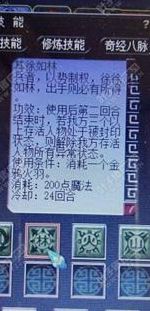 技 能
技能 修炼技能 奇经八脉
其徐如林
兵者，以势制权，徐徐
如林，出手则必有所得
。
功效：使用后第二回合
结束时，若我方三个以
上存活人物处于被封印
状态，则解除我方存活
人物所有异常状态。
使用条件：消耗一个金
鸡火羽。
消耗：200点魔法
冷却：24回合
林 火 山